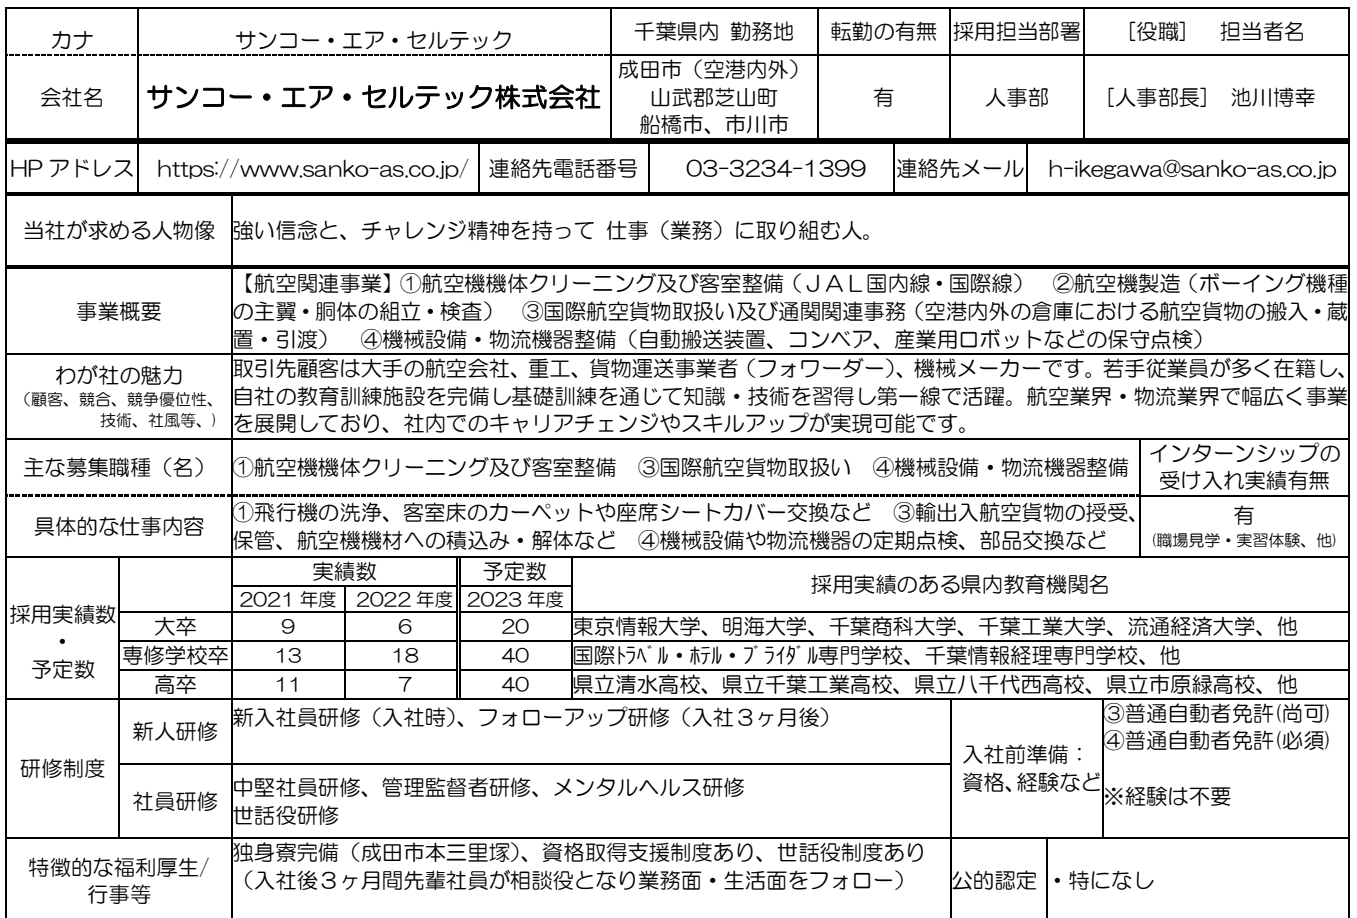 カナ サンコー・エア・セルテック 千葉県内 勤務地 転勤の有無 採用担当部署 ［役職］ 担当者名
会社名 サンコー・エア・セルテック株式会社 成田市（空港内外）
山武郡芝山町
船橋市、市川市 有 人事部 ［人事部長］ 池川博幸
HP アドレス https://www.sanko-as.co.jp/ 連絡先電話番号 03-3234-1399 連絡先メール h-ikegawa@sanko-as.co.jp
当社が求める人物像 強い信念と、チャレンジ精神を持って 仕事（業務）に取り組む人。
事業概要
【航空関連事業】①航空機機体クリーニング及び客室整備（ＪＡＬ国内線・国際線） ②航空機製造（ボーイング機種
の主翼・胴体の組立・検査） ③国際航空貨物取扱い及び通関関連事務（空港内外の倉庫における航空貨物の搬入・蔵
置・引渡） ④機械設備・物流機器整備（自動搬送装置、コンベア、産業用ロボットなどの保守点検）
わが社の魅力
（顧客、競合、競争優位性、
技術、社風等、）
取引先顧客は大手の航空会社、重工、貨物運送事業者（フォワーダー）、機械メーカーです。若手従業員が多く在籍し、
自社の教育訓練施設を完備し基礎訓練を通じて知識・技術を習得し第一線で活躍。航空業界・物流業界で幅広く事業
を展開しており、社内でのキャリアチェンジやスキルアップが実現可能です。
主な募集職種（名） ①航空機機体クリーニング及び客室整備 ③国際航空貨物取扱い ④機械設備・物流機器整備
インターンシップの
受け入れ実績有無
具体的な仕事内容
①飛行機の洗浄、客室床のカーペットや座席シートカバー交換など ③輸出入航空貨物の授受、
保管、航空機機材への積込み・解体など ④機械設備や物流機器の定期点検、部品交換など
有
（職場見学・実習体験、他）
採用実績数
・
予定数
実績数 予定数 採用実績のある県内教育機関名
2021 年度 2022 年度 2023 年度
大卒 9 6 20 東京情報大学、明海大学、千葉商科大学、千葉工業大学、流通経済大学、他
専修学校卒 13 18 40 国際ﾄﾗﾍﾞﾙ・ﾎﾃﾙ・ﾌﾞﾗｲﾀﾞﾙ専門学校、千葉情報経理専門学校、他
高卒 11 7 40 県立清水高校、県立千葉工業高校、県立八千代西高校、県立市原緑高校、他
研修制度
新人研修 新入社員研修（入社時）、フォローアップ研修（入社３ヶ月後）
社員研修 中堅社員研修、管理監督者研修、メンタルヘルス研修
世話役研修
入社前準備：
資格、経験など
③普通自動者免許(尚可)
④普通自動者免許(必須)
※経験は不要
特徴的な福利厚生/
行事等
独身寮完備（成田市本三里塚）、資格取得支援制度あり、世話役制度あり
（入社後３ヶ月間先輩社員が相談役となり業務面・生活面をフォロー）
公的認定 ・特になし